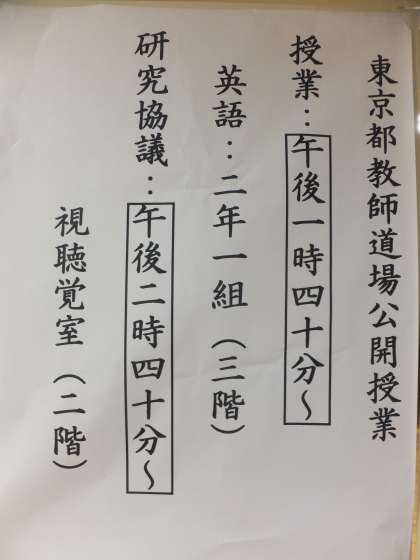 東京都教師道場公開授業
授業：午後一時四十分～
英語：二年一組（三階）
研究協議：午後二時四十分～
視聴覚室（二階）